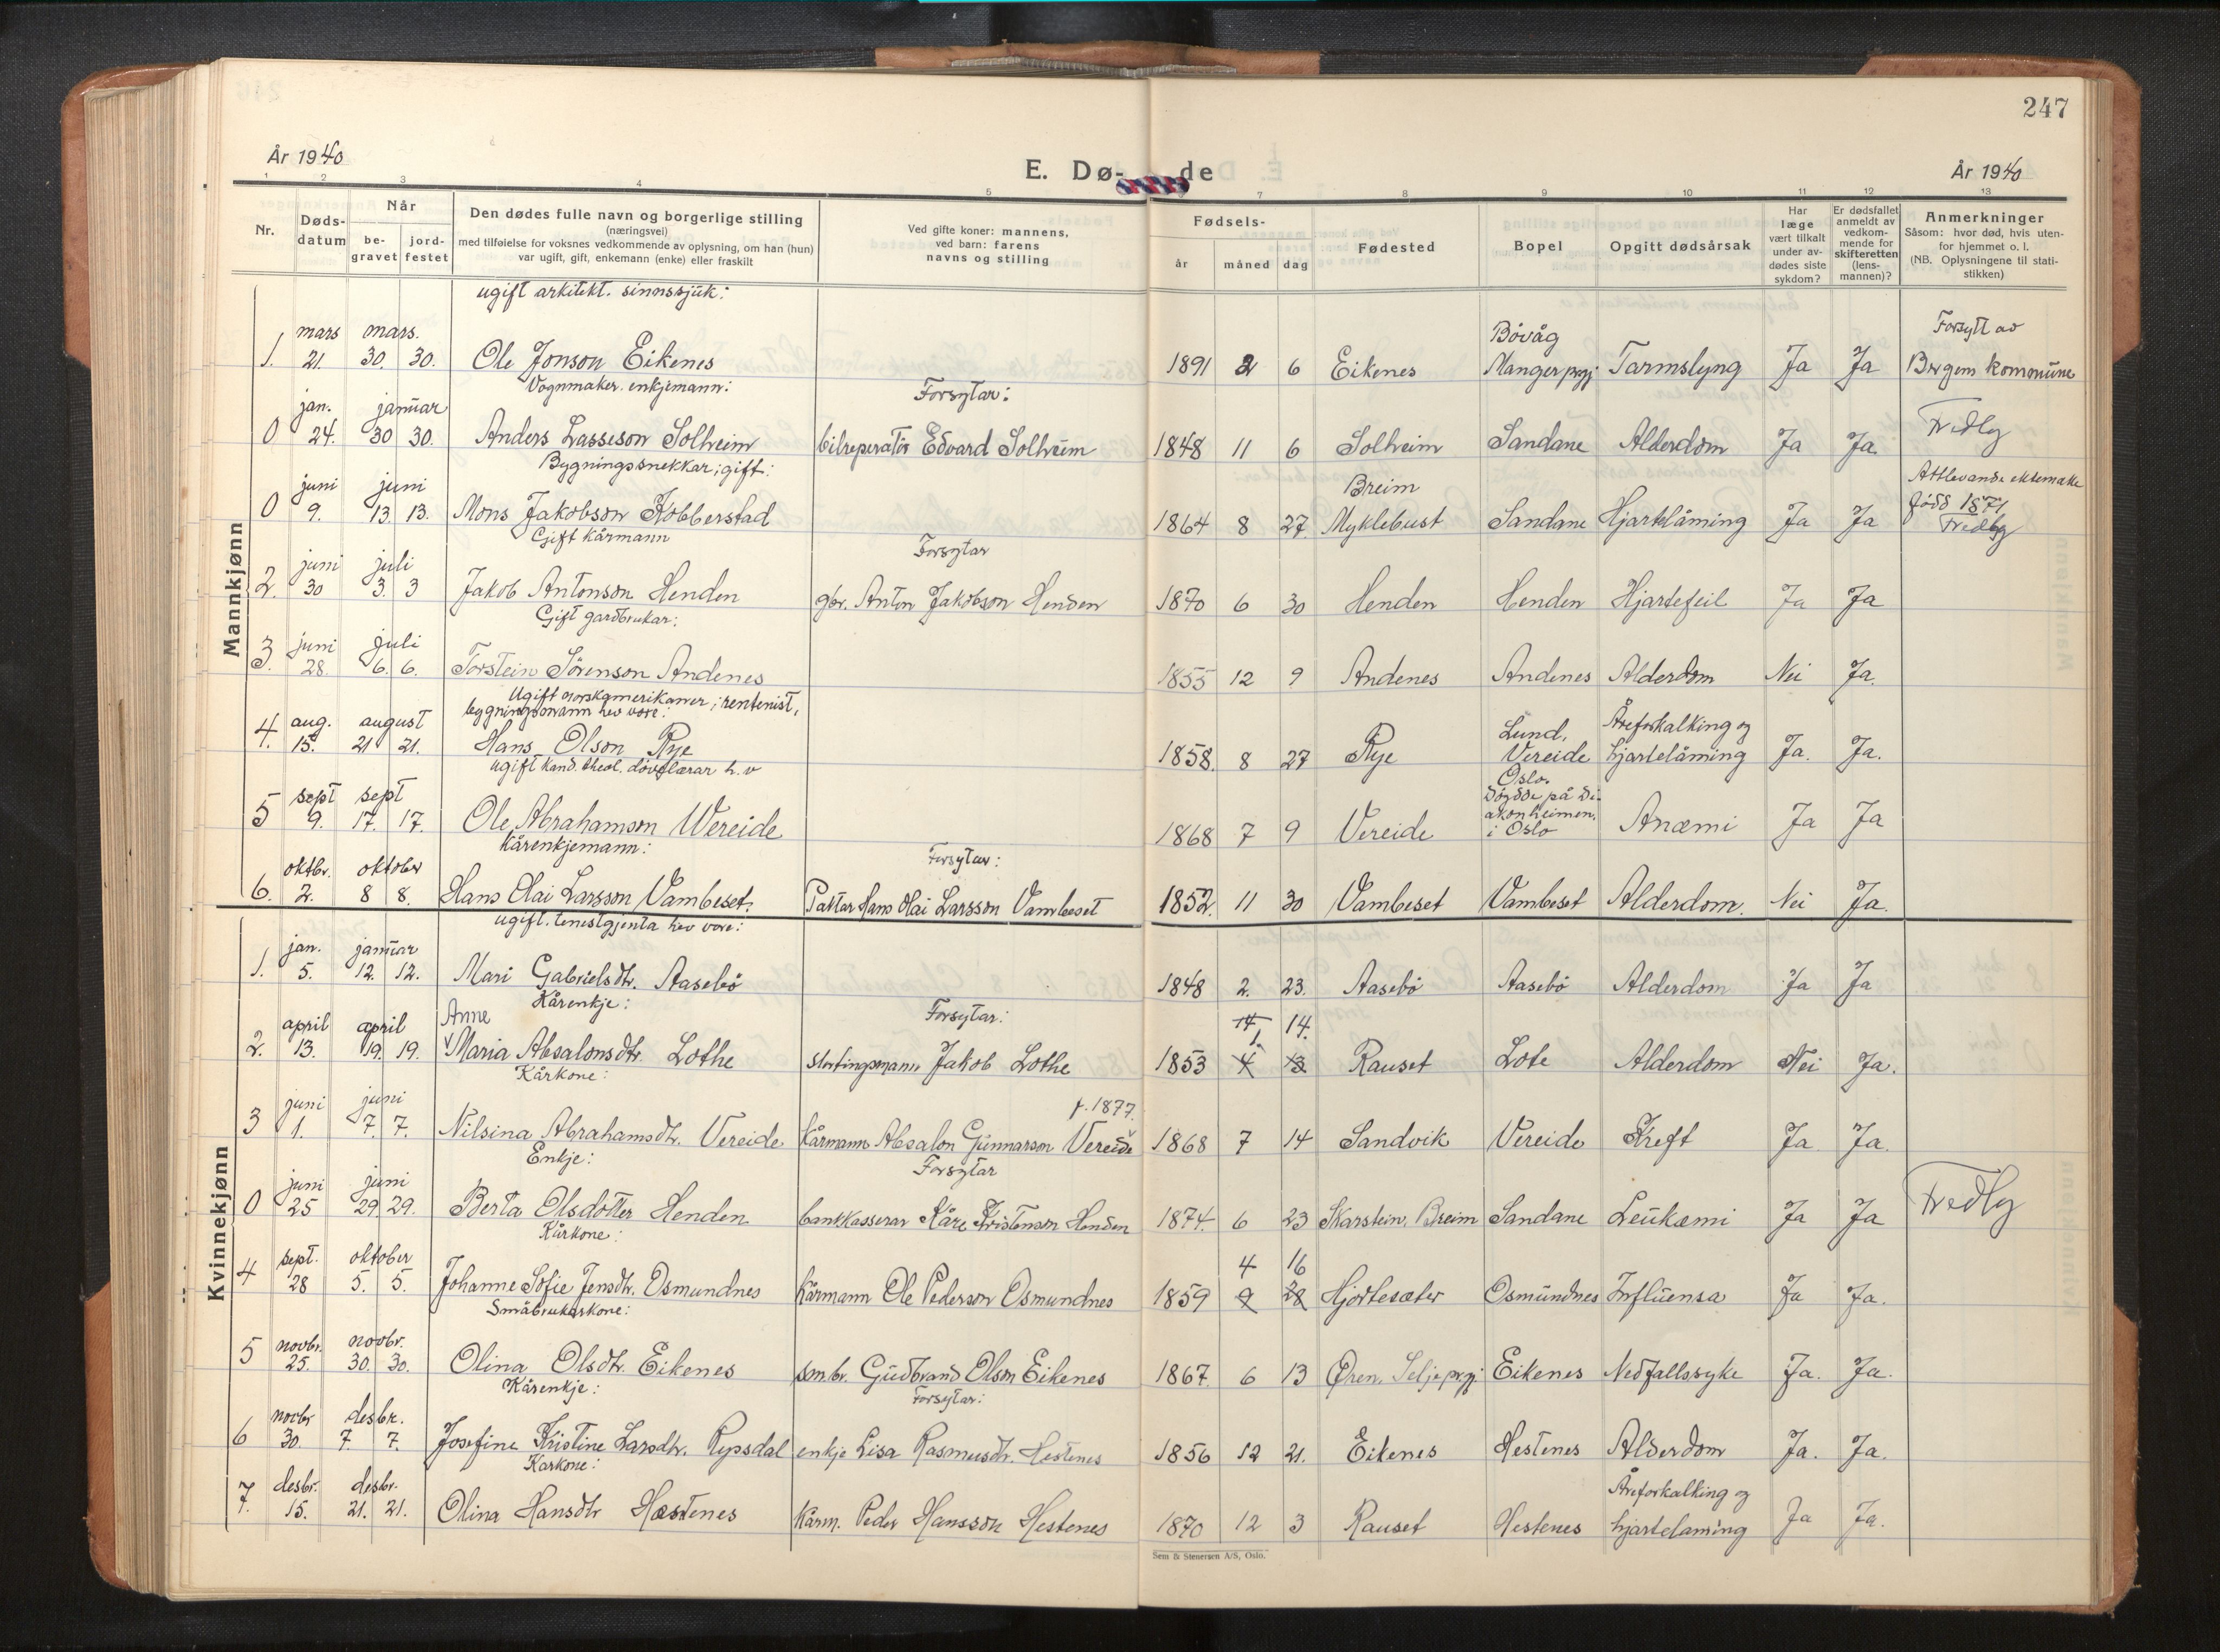 247
År 1940
E. Dø-
de
År 1940
1 2 3 4 5 7 8 9 10 11 12 13
Nr.
Døds-
datum
Når
be-
gravet
jord-
festet
Den dødes fulle navn og borgerlige stilling
(næringsvei)
med tilføielse for voksnes vedkommende av oplysning, om han (hun)
var ugift, gift, enkemann (enke) eller fraskilt
Ved gifte koner: mannens,
ved barn: farens
navns og stilling
Fødsels-
år måned dag
Fødested
Bopel
Opgitt dødsårsak
Har
læge
vært tilkalt
under av-
dødes siste
sykdom?
Er dødsfallet
anmeldt av
vedkom-
mende for
skifteretten
(lens-
mannen)?
Anmerkninger
Såsom: hvor død, hvis uten-
for hjemmet o. l.
(NB. Oplysningene til stati-
stikken)
Mannkjønn
ugift arkitekt. sinnssjuk:
mars mars. Bövåg Forsytt av
1. 21. 30. 30. Ole Jonson Eikenes 1891 2 6 Eikenes Manger prgj. Tarmslyng Ja Ja Bergens kommune
Vognmaker. enkjemann: Forsytar:
jan. januar
0 24. 30 30. Anders Lasseson Solheim bilreperatör Edvard Solheim 1848 11 6 Solheim Sandane Alderdom Ja Ja. Tredlg
Bygningssnekkar; gift:
juni juni Breim Attlevande ektemake
0 9. 13. 13. Mons Jakobson Kobberstad 1864 8 27 Myklebust Sandane Hjartelåming Ja Ja född 1871
Tredlg
Gift kårmann Forsytar
juni juli
2. 30 3. 3 Jakob Antonson Henden gbr. Anton Jakobson Henden 1870 6 30 Henden Henden Hjartefeil Ja Ja
Gift gardbrukar:
juni juli
3. 28. 6. 6. Torstein Sörenson Andenes 1855 12 9 Andenes Andenes Alderdom Nei Ja.
Ugift norskamerikaner; rentenist,
bygningsmann hev vore:
aug. august Lund, Åreforkalking og
4. 15. 21 21. Hans Olson Rye 1858. 8 27 Rye Vereide hjartelåming Ja. Ja.
ugift kand. theol. døvelærar h.v
sept sept Oslo.
døydde på di-
akonheimen.
i Oslo
5 9. 17. 17. Ole Abrahamson Wereide 1868 7 9 Vereide Anæmi Ja Ja
Kårenkjemann: Forsytar:
oktbr. oktober
6. 2. 8 8. Hans Olai Larsson Vambeset. Hans Olai Larsson Vambeset 1852. 11 30 Vambeset Vambeset Alderdom. Nei Ja.
Kvinnekjønn
ugift. tenestgjenta hev vore:
jan. januar
1. 5. 12. 12. Mari Gabrielsdtr. Aasebö 1848 2. 23. Aasebö Aasebö Alderdom Ja Ja
Kårenkje: Forsytar:
april april Anne 14 14.
1.
2. 13. 19. 19. Maria Absalonsdtr. Lothe stortingsmann Jakob Lothe 1853 4 13 Rauset Lote Alderdom Nei Ja.
Kårkone:
juni juni f. 1877.
3 1. 7. 7. Nilsina Abrahamsdtr. Vereide Kårmann Absalon Gunnarson Vereide 1868 7 14 Sandvik Vereide Kreft Ja Ja.
Enkje: Forsytar
juni juni
0 25 29 29. Berta Olsdotter Henden bankkasserar Kåre Kristenson Henden 1874. 6 23 Skarstein, Breim Sandane Leukæmi Ja Ja Tredlg
Kårkone:
sept. oktober 4 16
4 28 5. 5. Johanne Sofie Jensdtr. Osmundnes Kårmann Ole Pederson Osmundnes 1859 9 28 Hjortesæter Osmundnes Influensa Ja Ja.
Småbrukarkone:
novbr. novbr.
5 25. 30. 30. Olina Olsdtr. Eikenes sm.br. Gudbrand Olson Eikenes 1867. 6 13 Øren, Selje prgj. Eikenes Nedfallssyke Ja. Ja.
Kårenkje: Forsytar:
novbr desbr.
6 30. 7 7. Josefine Kristine Larsdtr. Rypsdal enkje Lisa Rasmusdtr. Hestenes 1856 12 21. Eikenes Hestenes Alderdom Ja. Ja.
Kårkone:
desbr. desbr. Åreforkalking og
7. 15. 21. 21. Olina Hansdtr Hæstenes Kårm. Peder Hansson Hestenes 1870 12 3 Rauset Hestenes hjartelaming Ja Ja.
Sem & Stenersen A/S, Oslo.